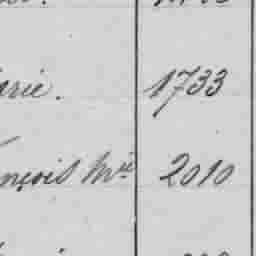 arie. 1733
nçois Mie 2010